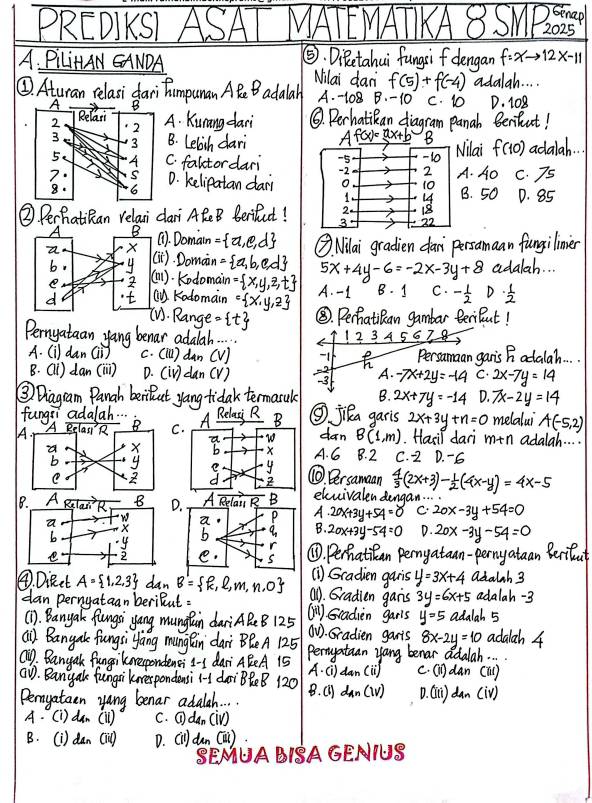 PREDIKSI ASAT MATEMATIKA 8 SMP Genap 2025
A. PILIHAN GANDA
① Aturan relasi dari himpunan A ke B adalah
A B
Relasi
2 . 2
3 3
5 4
7. 5
8. 6
A. Kurang dari
B. Lebih dari
C. faktor dari
D. Kelipatan dari
② Perhatikan relasi dari A ke B berikut!
A B
a x
b. y
c z
d . t
(i). Domain = {a,c,d}
(ii). Domain = {a,b,c,d}
(iii). Kodomain = {x,y,z,t}
(iv). Kodomain = {x,y,z}
(v). Range = {t}
Pernyataan yang benar adalah....
A. (i) dan (ii) C. (iii) dan (v)
B. (ii) dan (iii) D. (iv) dan (v)
③ Diagram Panah berikut yang tidak termasuk
fungsi adalah....
A. A Relasi R B
a x
b y
c z
C. A Relasi R B
a w
b x
c y
d z
B. A Relasi R B
a w
b x
. y
c z
D. A Relasi R B
a. p
b. q
c. r
s
④ Diket A = {1,2,3} dan B = {k, l, m, n, o}
dan pernyataan berikut =
(i). Banyak fungsi yang mungkin dari A ke B 125
(ii). Banyak fungsi yang mungkin dari B ke A 125
(iii). Banyak fungsi korespondensi 1-1 dari A ke A 15
(iv). Banyak fungsi korespondensi 1-1 dari B ke B 120
Pernyataan yang benar adalah....
A. (i) dan (ii) C. (i) dan (iv)
B. (i) dan (iii) D. (ii) dan (iii).
⑤. Diketahui fungsi f dengan f:x→12x-11
Nilai dari f(5)+f(-4) adalah....
A. -108 B. -10 C. 10 D. 108
⑥. Perhatikan diagram panah berikut!
A f(x)=ax+b B
-5 -10
-2 2
0 10
1 14
2 18
3 22
Nilai f(10) adalah...
A. 40 C. 75
B. 50 D. 85
⑦ Nilai gradien dari persamaan fungsi linier
5x+4y-6=-2x-3y+8 adalah...
A. -1 B. 1 C. -1/2 D. 1/2
⑧. Perhatikan gambar berikut!
1 2 3 4 5 6 7 8
-1
-2
-3
h
Persamaan garis h adalah....
A. -7x+2y=-14 C. 2x-7y=14
B. 2x+7y=-14 D. 7x-2y=14
⑨. Jika garis 2x+3y+n=0 melalui A(-5,2)
dan B(1,m). Hasil dari m+n adalah....
A. 6 B. 2 C. -2 D. -6
⑩ Persamaan 4/3(2x+3)-1/2(4x-y)=4x-5
ekuivalen dengan....
A. 20x+3y+54=0 C. 20x-3y+54=0
B. 20x+3y-54=0 D. 20x-3y-54=0
⑪. Perhatikan pernyataan-pernyataan berikut
(i) Gradien garis y=3x+4 adalah 3
(ii). Gradien garis 3y=6x+5 adalah -3
(iii). Gradien garis y=5 adalah 5
(iv). Gradien garis 8x-2y=10 adalah 4
Pernyataan yang benar adalah....
A. (i) dan (ii) C. (ii) dan (iii)
B. (i) dan (iv) D. (iii) dan (iv)
SEMUA BISA GENIUS